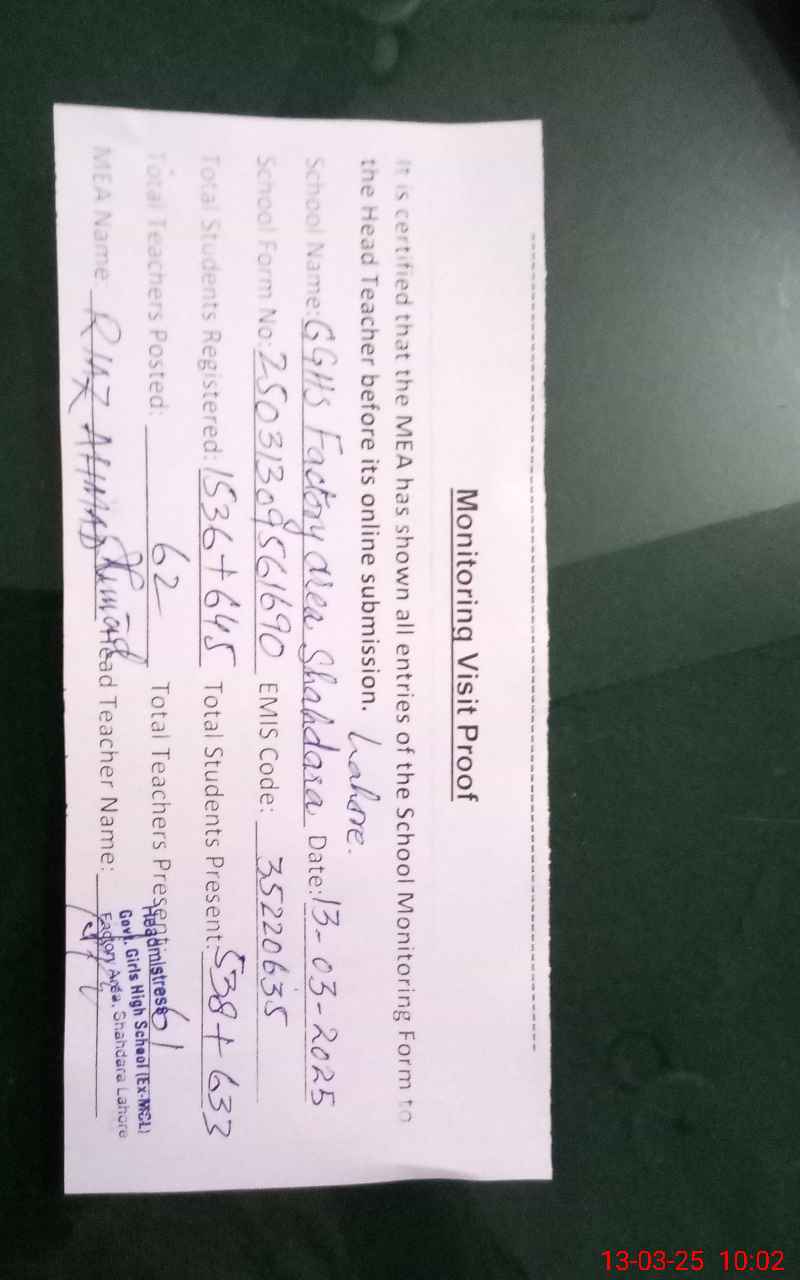 Monitoring Visit Proof
It is certified that the MEA has shown all entries of the School Monitoring Form to
the Head Teacher before its online submission.
Lahore.
School Name: GGHS Factory area Shahdara Date: 13-03-2025
School Form No: 25031309561690 EMIS Code: 35220635
Total Students Registered: 1536+645 Total Students Present: 538+633
Total Teachers Posted: 62 Total Teachers Present: 61
MEA Name RIAZ AHMAD Head Teacher Name:
Headmistress
Govt. Girls High School (Ex-MCL)
Factory Area, Shahdara Lahore
13-03-25 10:02